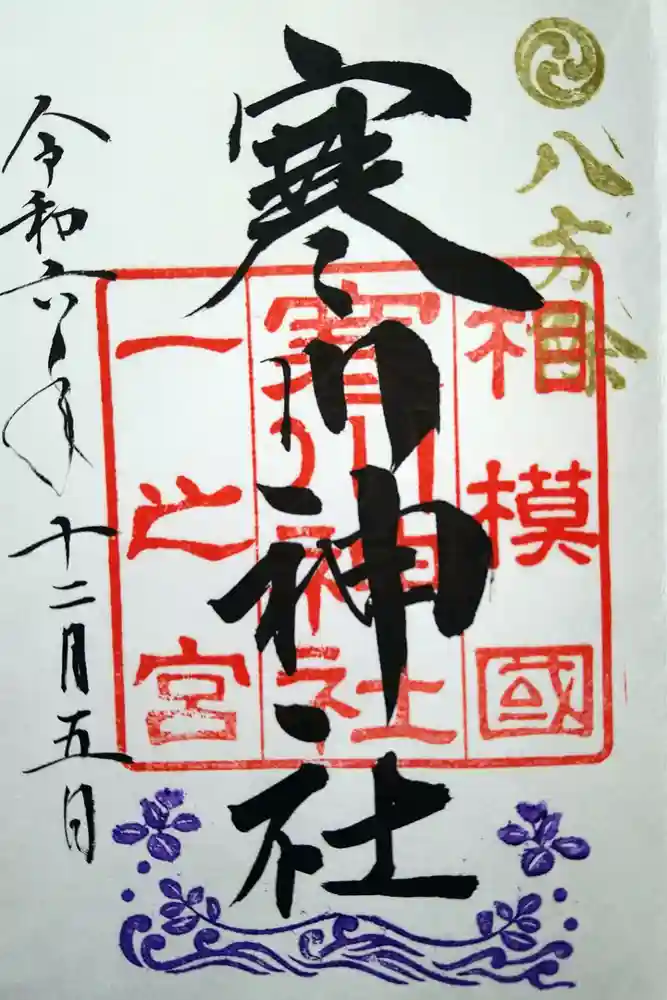 八方除
相模國
寒川神社
一之宮
寒川神社
令和六年十二月五日